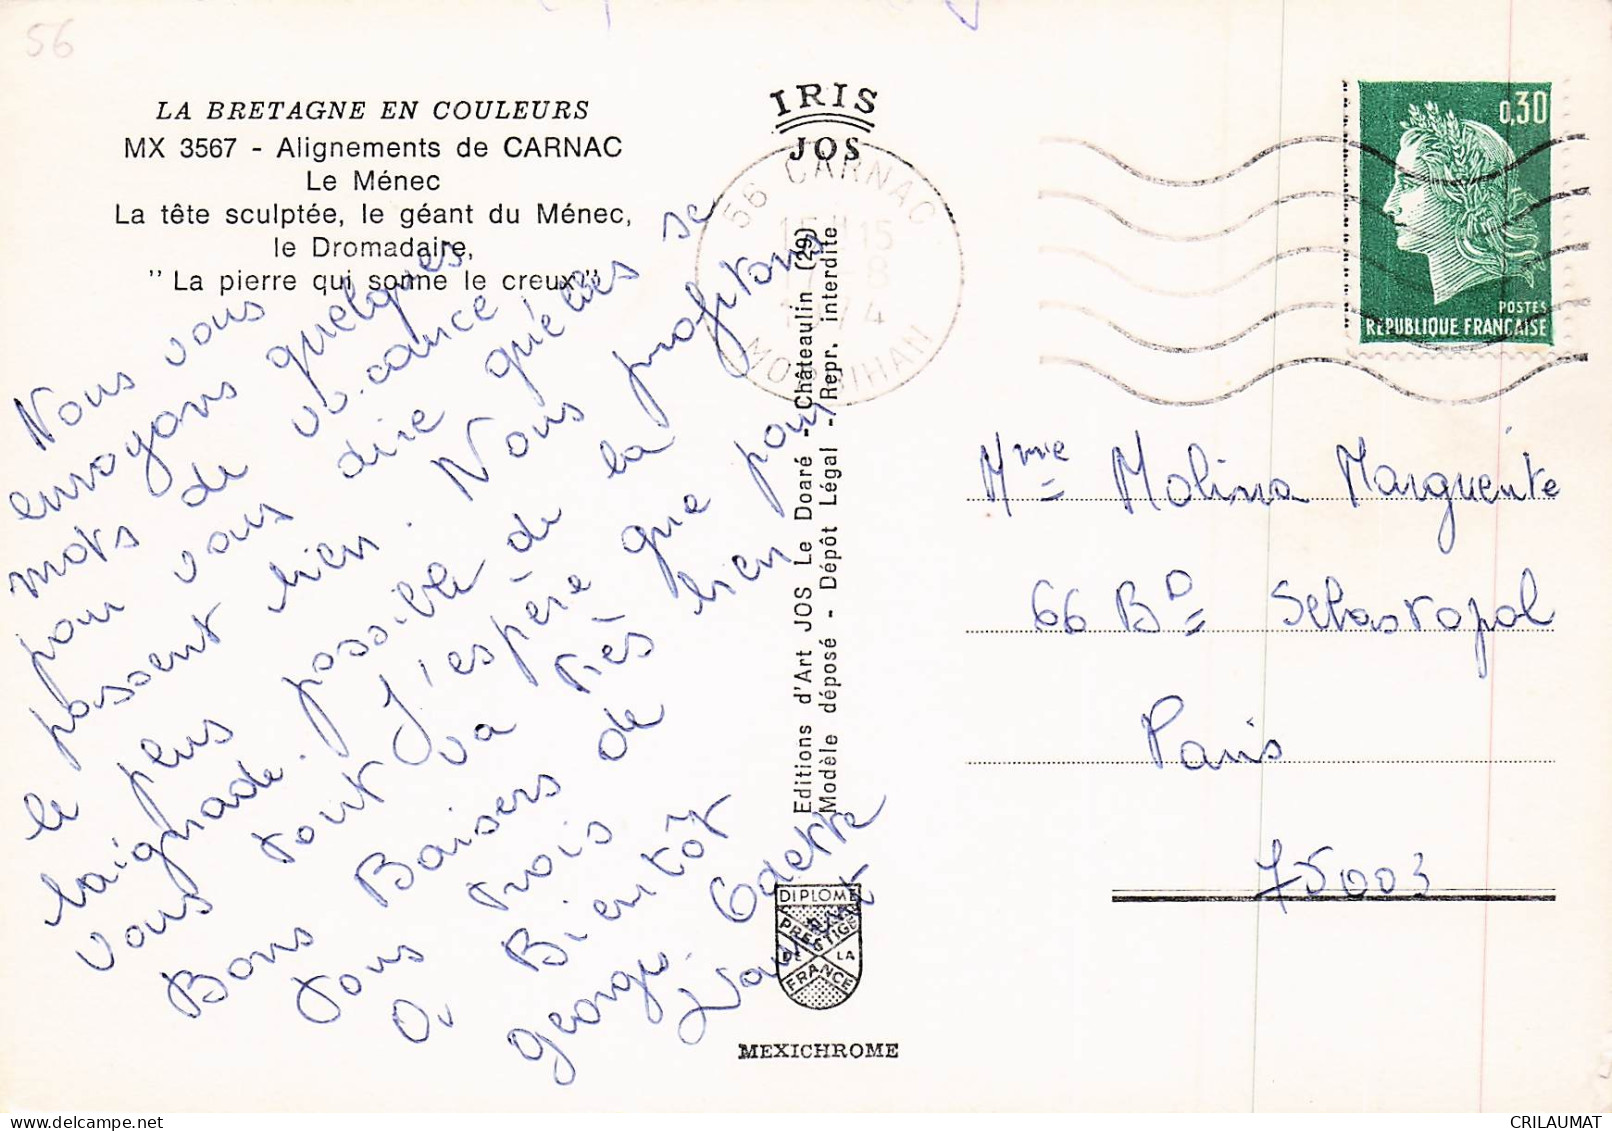 56
LA BRETAGNE EN COULEURS
MX 3567 - Alignements de CARNAC
Le Ménec
La tête sculptée, le géant du Ménec,
le Dromadaire,
"La pierre qui sonne le creux"
Nous vous
envoyons quelques
mots de vacance
pour vous dire qu'elles se
passent bien. Nous profitons
le plus possible de la
baignade. J'espère que pour
vous tout va très bien
Bons Baisers de
tous trois
A Bientôt
georges. Odette
IRIS
JOS
Editions d'Art JOS Le Doaré - Châteaulin (29)
Modèle déposé - Dépôt Légal - Repr. interdite
DIPLOME
PRESTIGE
DE LA
FRANCE
MEXICHROME
56 CARNAC
15H15
8
1974
MORBIHAN
0,30
POSTES
REPUBLIQUE FRANCAISE
Mme Molina Marguerite
66 BD Sebastopol
Paris
75003
CRILAUMAT